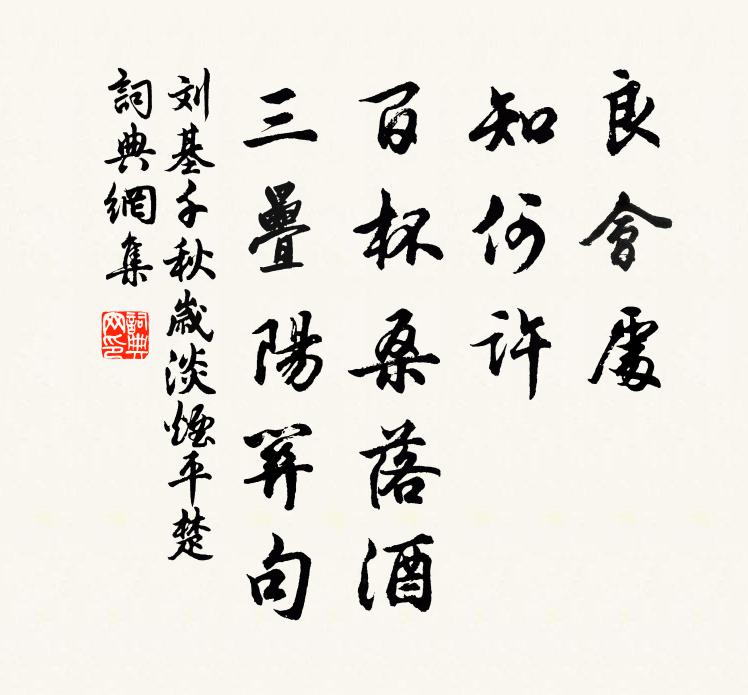 良會處
知何許
百杯桑落酒
三疊陽関句
刘基千秋歲淡煙平楚
詞典網集
詞典网印